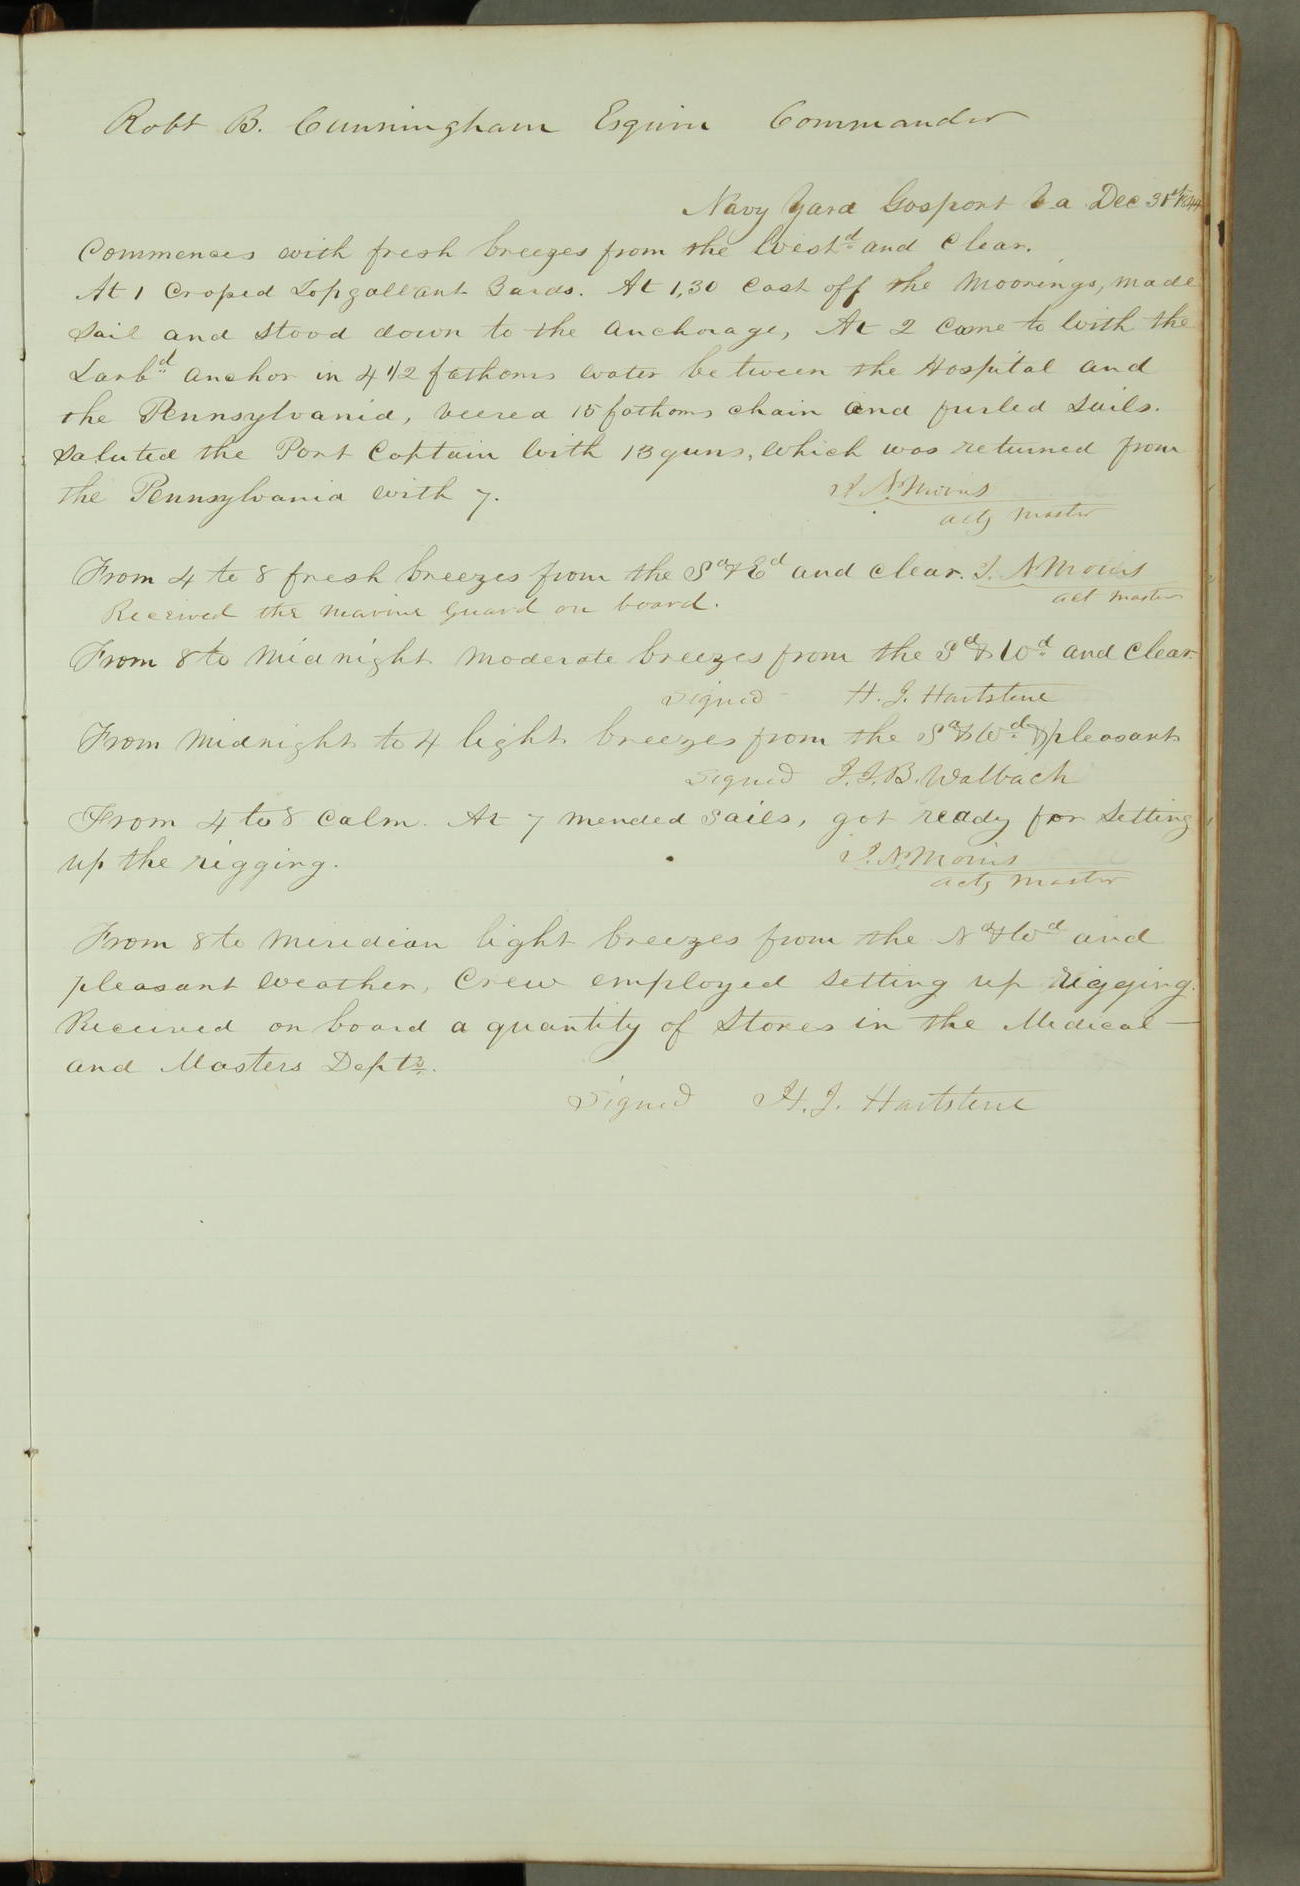 Robt B. Cunningham Esquire Commander
Navy Yard Gosport Va Dec 31st 1844
Commences with fresh breezes from the Westd and clear.
At 1 Crosed Topgallant Yards. At 1,30 Cast off the Moorings, made
Sail and Stood down to the Anchorage, At 2 Came to With the
Larbd Anchor in 4 1/2 fathoms water between the Hospital and
the Pennsylvania, veered 15 fathoms chain and furled Sails.
Saluted the Port Captain With 13 guns, which was returned from
the Pennsylvania with 7.
N Morris
actg Master
From 4 to 8 fresh breezes from the Sd & Ed and clear. N Morris
act Master
Received the Marine Guard on board.
From 8 to Midnight Moderate breezes from the Sd & Wd and Clear.
Signed H. J. Hartstene
From Midnight to 4 light breezes from the Sd & Wd & pleasant
Signed J. J. B. Walbach
From 4 to 8 Calm. At 7 mended Sails, got ready for Setting
up the rigging.
N. Morris
actg Master
From 8 to Meridian light breezes from the Nd & Wd and
pleasant weather, Crew employed setting up rigging.
Received on board a quantity of Stores in the Medical
and Masters Depts.
Signed H. J. Hartstene